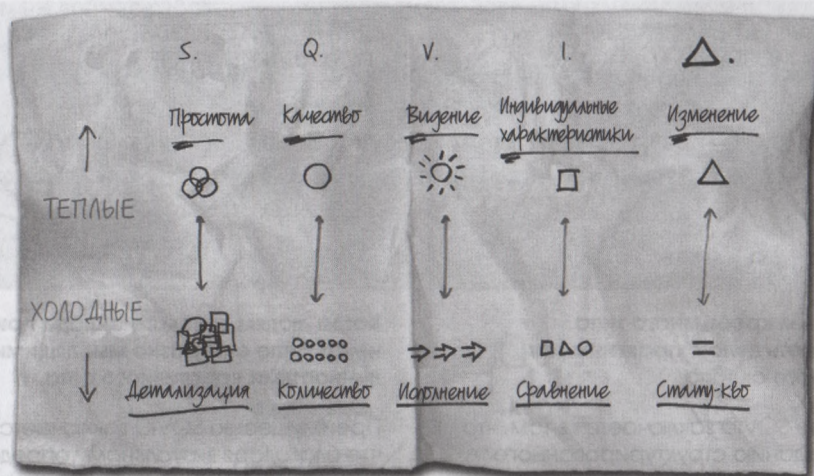 S. Q. V. I. Δ.
Простота Качество Видение Индивидуальные характеристики Изменение
ТЕПЛЫЕ
ХОЛОДНЫЕ
Детализация Количество Исполнение Сравнение Стату-кво